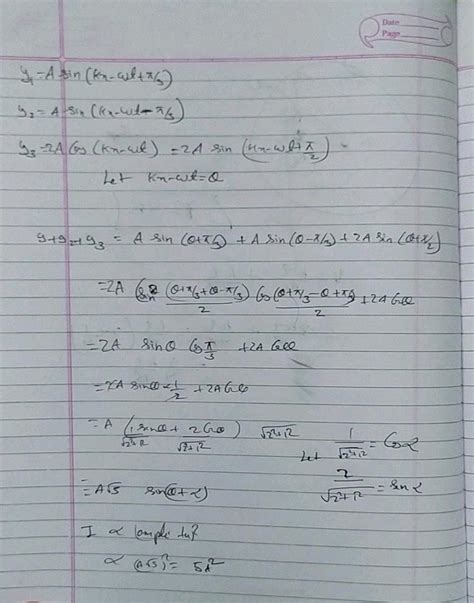 Date
Page
y₁ = A sin (kx-ωt+π/3)
y₂ = A sin (kx-ωt-π/3)
y₃ = 2A Cos (kx-ωt) = 2A sin (kx-ωt+π/2)
Let kx-ωt=θ
y₁+y₂+y₃ = A sin (θ+π/3) + A sin (θ-π/3) + 2A sin (θ+π/2)
=2A sin (θ+π/3+θ-π/3)/2 Cos (θ+π/3-θ+π/3)/2 + 2A Cosθ
=2A sinθ Cos π/3 +2A Cosθ
=2A sinθ × 1/2 + 2A Cosθ
=A (1 sinθ/√2²+1² + 2 Cosθ/√2²+1²) √2²+1² Let 1/√2²+1² = Cos α
2/√2²+1² = sin α
=A√5 sin(θ+α)
I ∝ (amplitu)²
∝ (A√5)² = 5A²